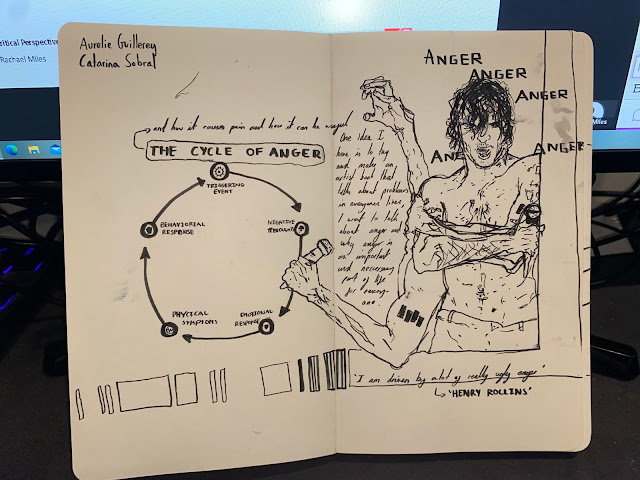 Critical Perspective
Rachael Miles
Miles
Aurelie Guillerey
Catarina Sobral
and how it causes pain and how it can be
THE CYCLE OF ANGER
TRIGGERING
EVENT
NEGATIVE
EMOTIONAL
RESPONSE
PHYSICAL
SYMPTOMS
BEHAVIORIAL
RESPONSE
ANGER
ANGER
ANGER
ANGER
One idea I
have is to try
and make an
artist book that
talks about problems
in everyones lives,
I want to talk
about anger and
why anger is
an important
and neccessary
part of life
for every-
one.
"I am driven by a lot of really ugly anger"
'HENRY ROLLINS'